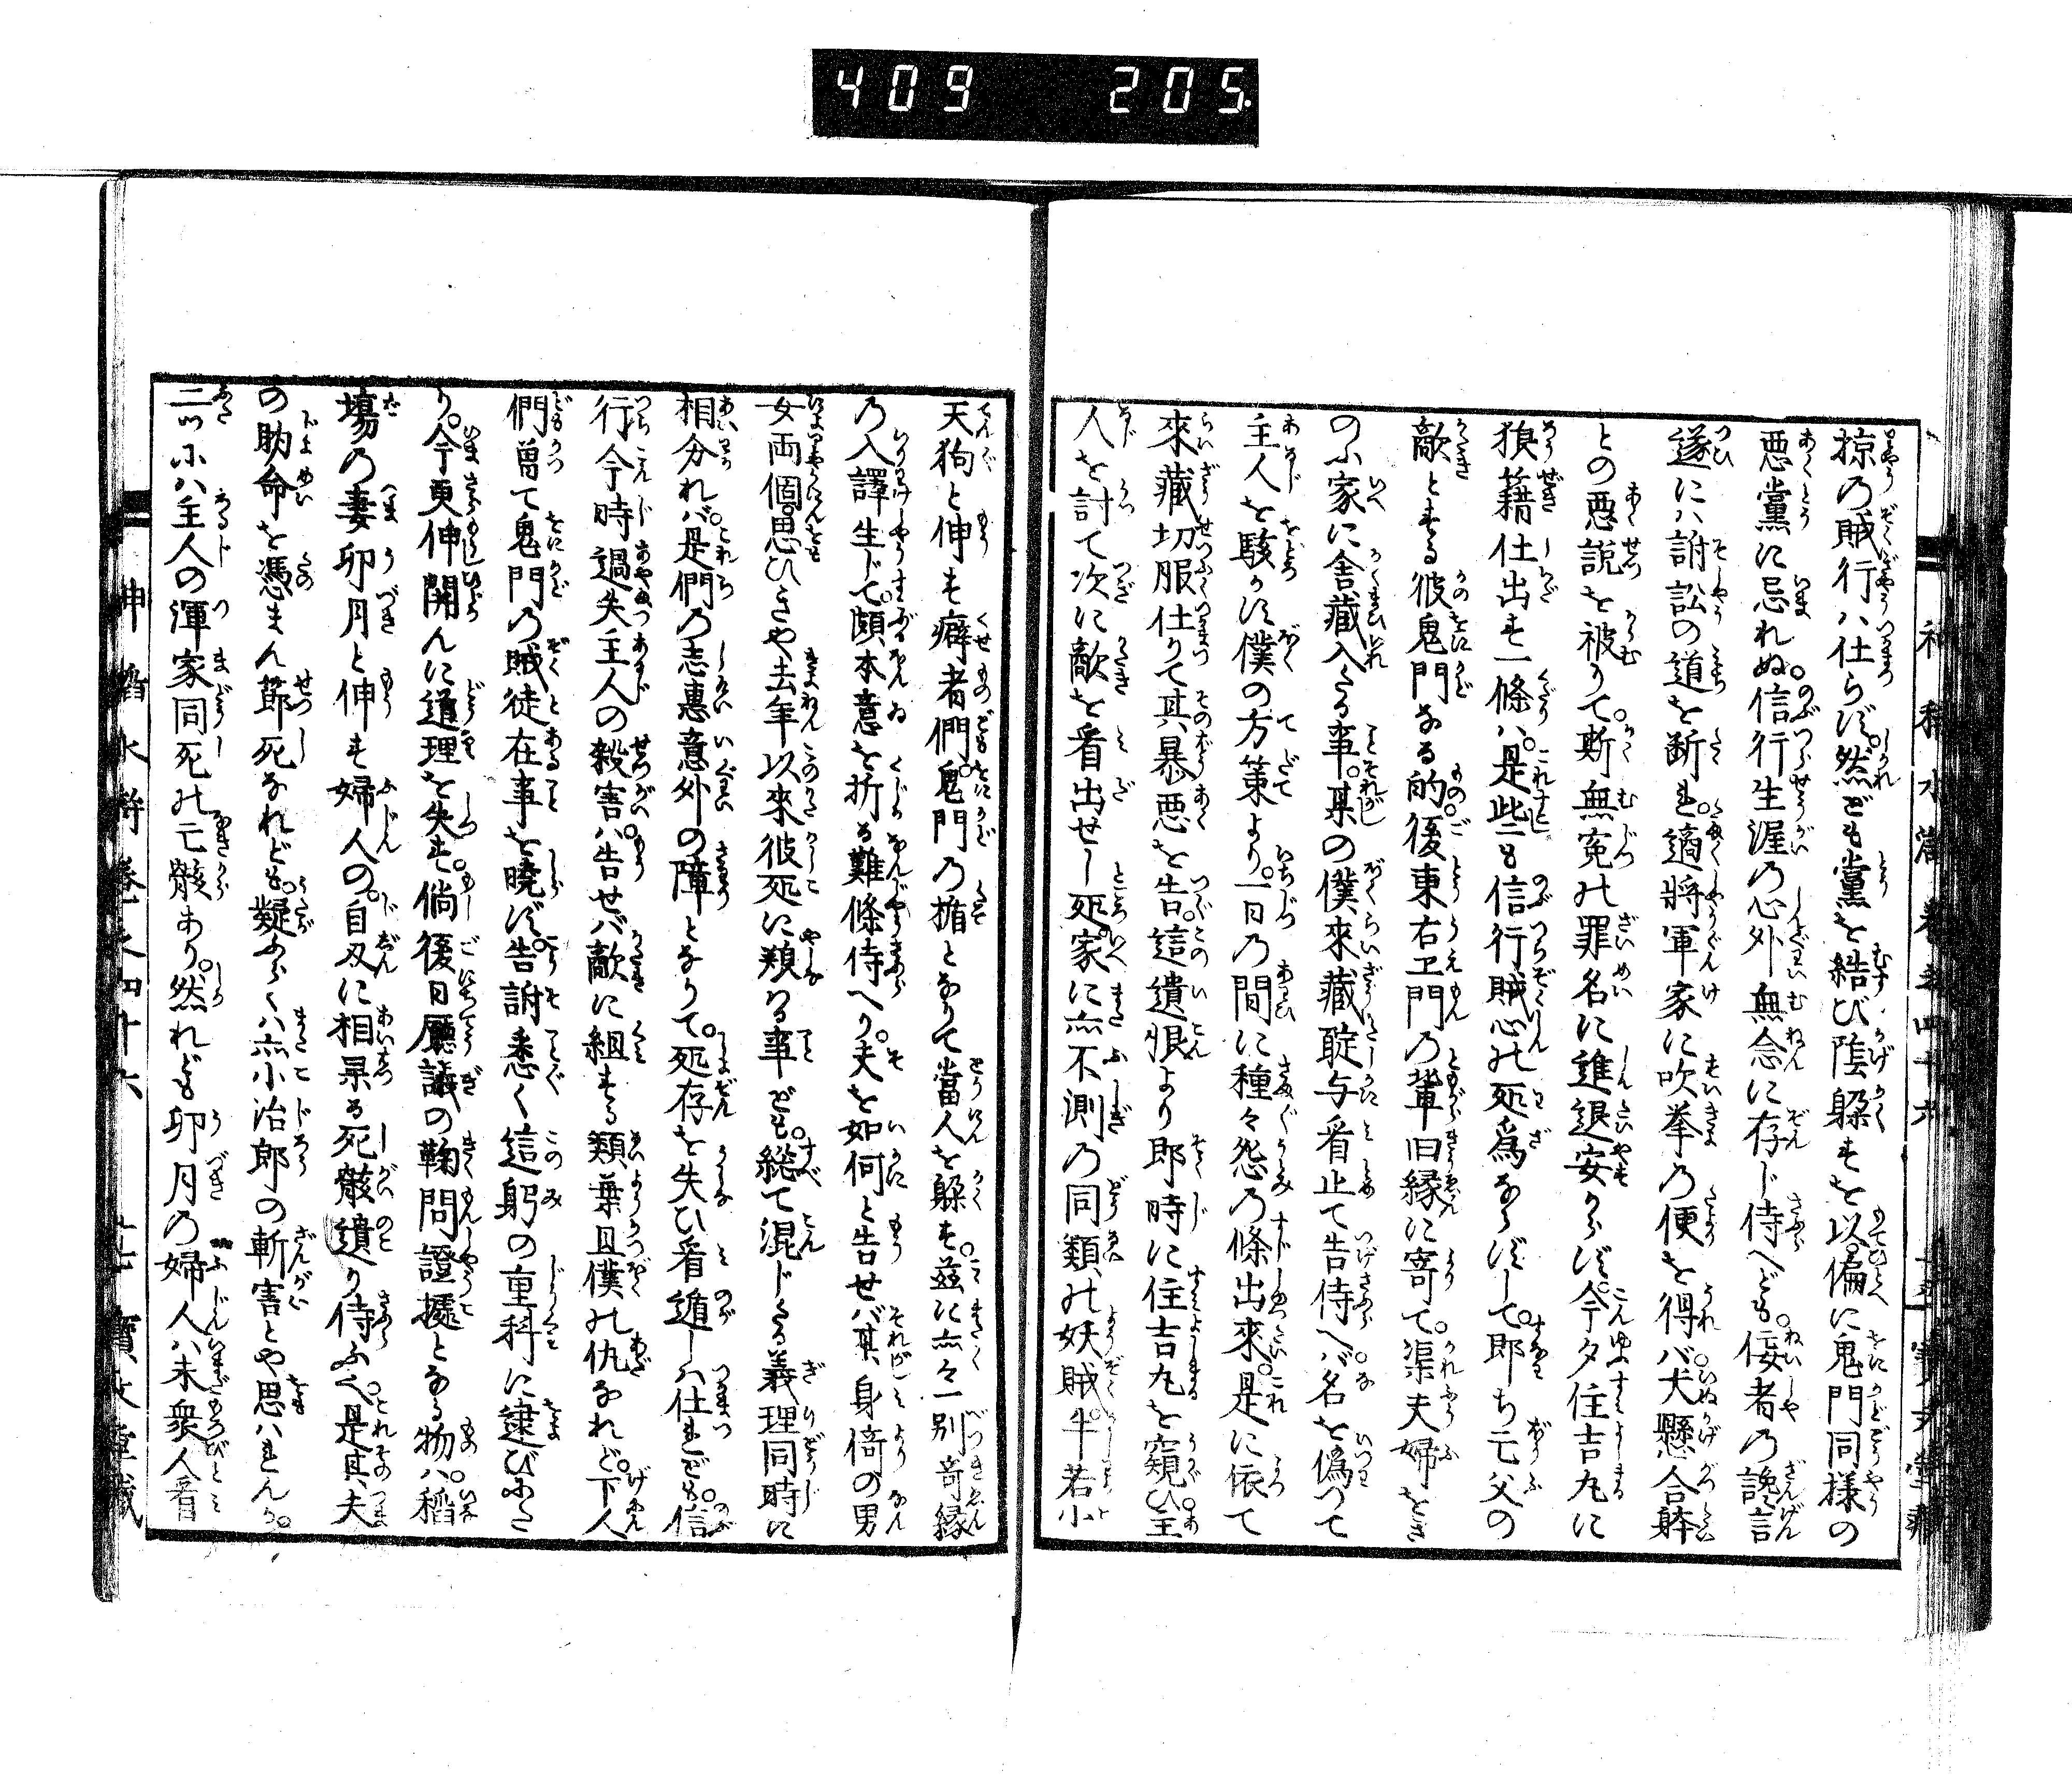 409 205.
掠の賊行ハ仕らず。然ども黨を結び陰躱すを以。偏に鬼門同様の
惡黨に忌れぬ。信行生涯の心外無念に存じ侍へども。佞者の讒言
遂にハ訴訟の道を断れ。適將軍家に吹挙の便を得バ犬懸合躰
との惡説を被りて。斯無寃の罪名に進退安からず。今夕住吉丸に
狼藉仕出す一條ハ。是些も信行賊心の所爲ならずして。郎ち亡父の
敵とする彼鬼門なる的。後東右ヱ門の輩旧縁に寄て。渠夫婦をき
のふ家に舎藏入たる事。某の僕來藏聢与看止て告侍へバ。名を僞つて
主人を駭かす僕の方策より。一日の間に種々怨の條出來。是に依て
來藏切服仕りて其暴惡を告。這遺恨より郎時に住吉丸を窺ひ。主
人を討て次に敵を看出せし所。家に亦不測の同類の妖賊。牛若小
天狗と伸す癖者們。鬼門の楯となりて當人を躱す。茲に亦々一別竒縁
の入譯生じて。頗本意を折る難條侍へり。夫を如何と告せバ。某身倚の男
女両個。思ひきや去年以來彼所に頬る事ども。総て混じたる義理同時に
相分れバ。是們の志惠意外の障となりて。所存を失ひ看遁しハ仕れども。信
行今時過失主人の殺害ハ。告せバ敵に組する類葉且僕の仇なれど。下人
們曽て鬼門の賊徒在事を曉ず。告訴悉く這躬の重科に逮びぬ
り。今更伸開んに道理を失す。倘後日廳議の鞠問證據となる物ハ。稲
塲の妻卯月と伸す婦人の。自刄に相果る死骸遺り侍ふべく。是其夫
の助命を憑まん節死なれども。疑ふらくハ亦小治郎の斬害とや思ハれんか。
二ツにハ主人の渾家同死の亡骸あり。然れども卯月の婦人ハ未衆人看